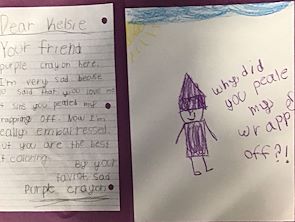 Dear Kelsie
Your friend
purple crayon here.
I'm very sad
said that you love me
you pealed my
wrapping off. Now I'm
embarressed.
but you are the best
at coloring.
By your
sad
Purple crayon
why did
you peale
my
wrapp
off?!